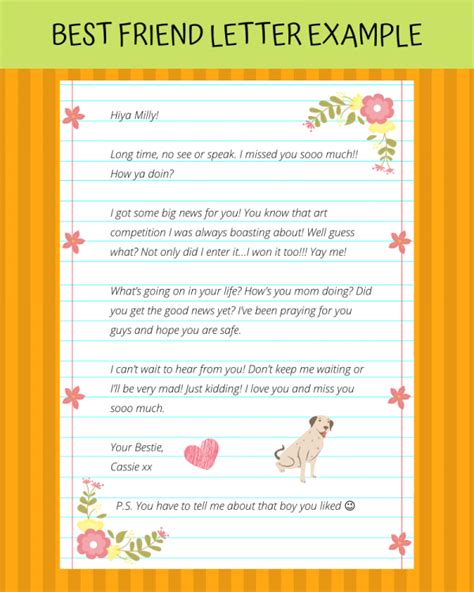 BEST FRIEND LETTER EXAMPLE
Hiya Milly!
Long time, no see or speak. I missed you sooo much!!
How ya doin?
I got some big news for you! You know that art
competition I was always boasting about! Well guess
what? Not only did I enter it...I won it too!!! Yay me!
What's going on in your life? How's you mom doing? Did
you get the good news yet? I've been praying for you
guys and hope you are safe.
I can't wait to hear from you! Don't keep me waiting or
I'll be very mad! Just kidding! I love you and miss you
sooo much.
Your Bestie,
Cassie xx
P.S. You have to tell me about that boy you liked 😉